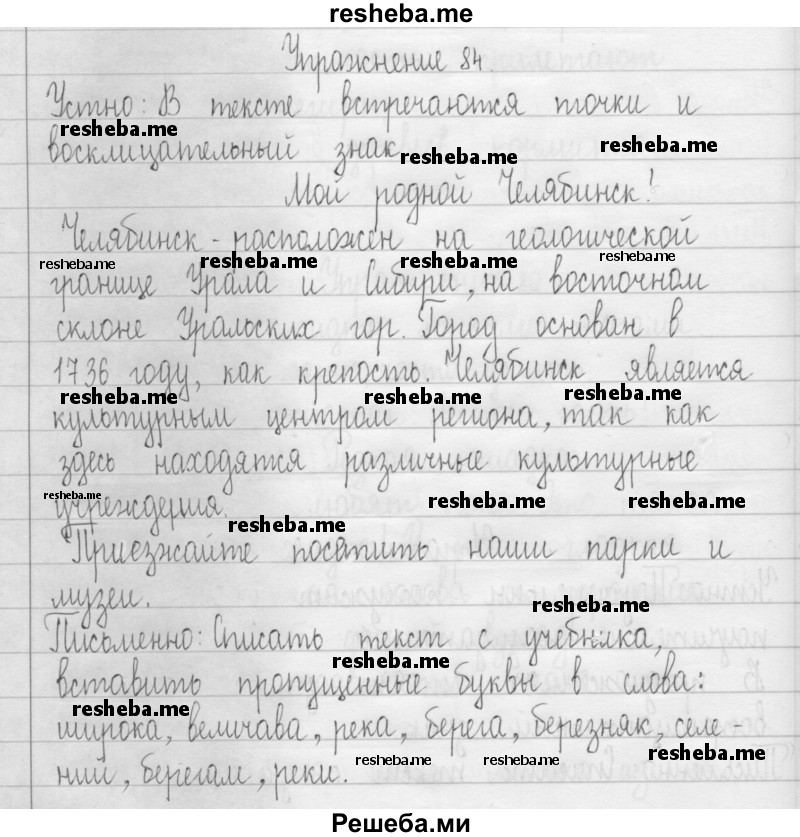 resheba.me
Упражнение 84.
Устно: В тексте встречаются точки и
resheba.me
восклицательный знак
resheba.me resheba.me
Мой родной Челябинск!
Челябинск - расположен на геологической
resheba.me resheba.me resheba.me resheba.me
границе Урала и Сибири, на восточном
склоне Уральских гор. Город основан в
1736 году, как крепость. Челябинск является
resheba.me resheba.me resheba.me
культурным центром региона, так как
здесь находятся различные культурные
resheba.me resheba.me resheba.me
учреждения.
resheba.me
Приезжайте посетить наши парки и
музеи.
resheba.me
Письменно: Списать текст с учебника,
resheba.me
вставить пропущенные буквы в слова:
resheba.me
широка, величава, река, берега, березняк, селе-
ний, берегам, реки.
resheba.me resheba.me resheba.me
Решеба.ми